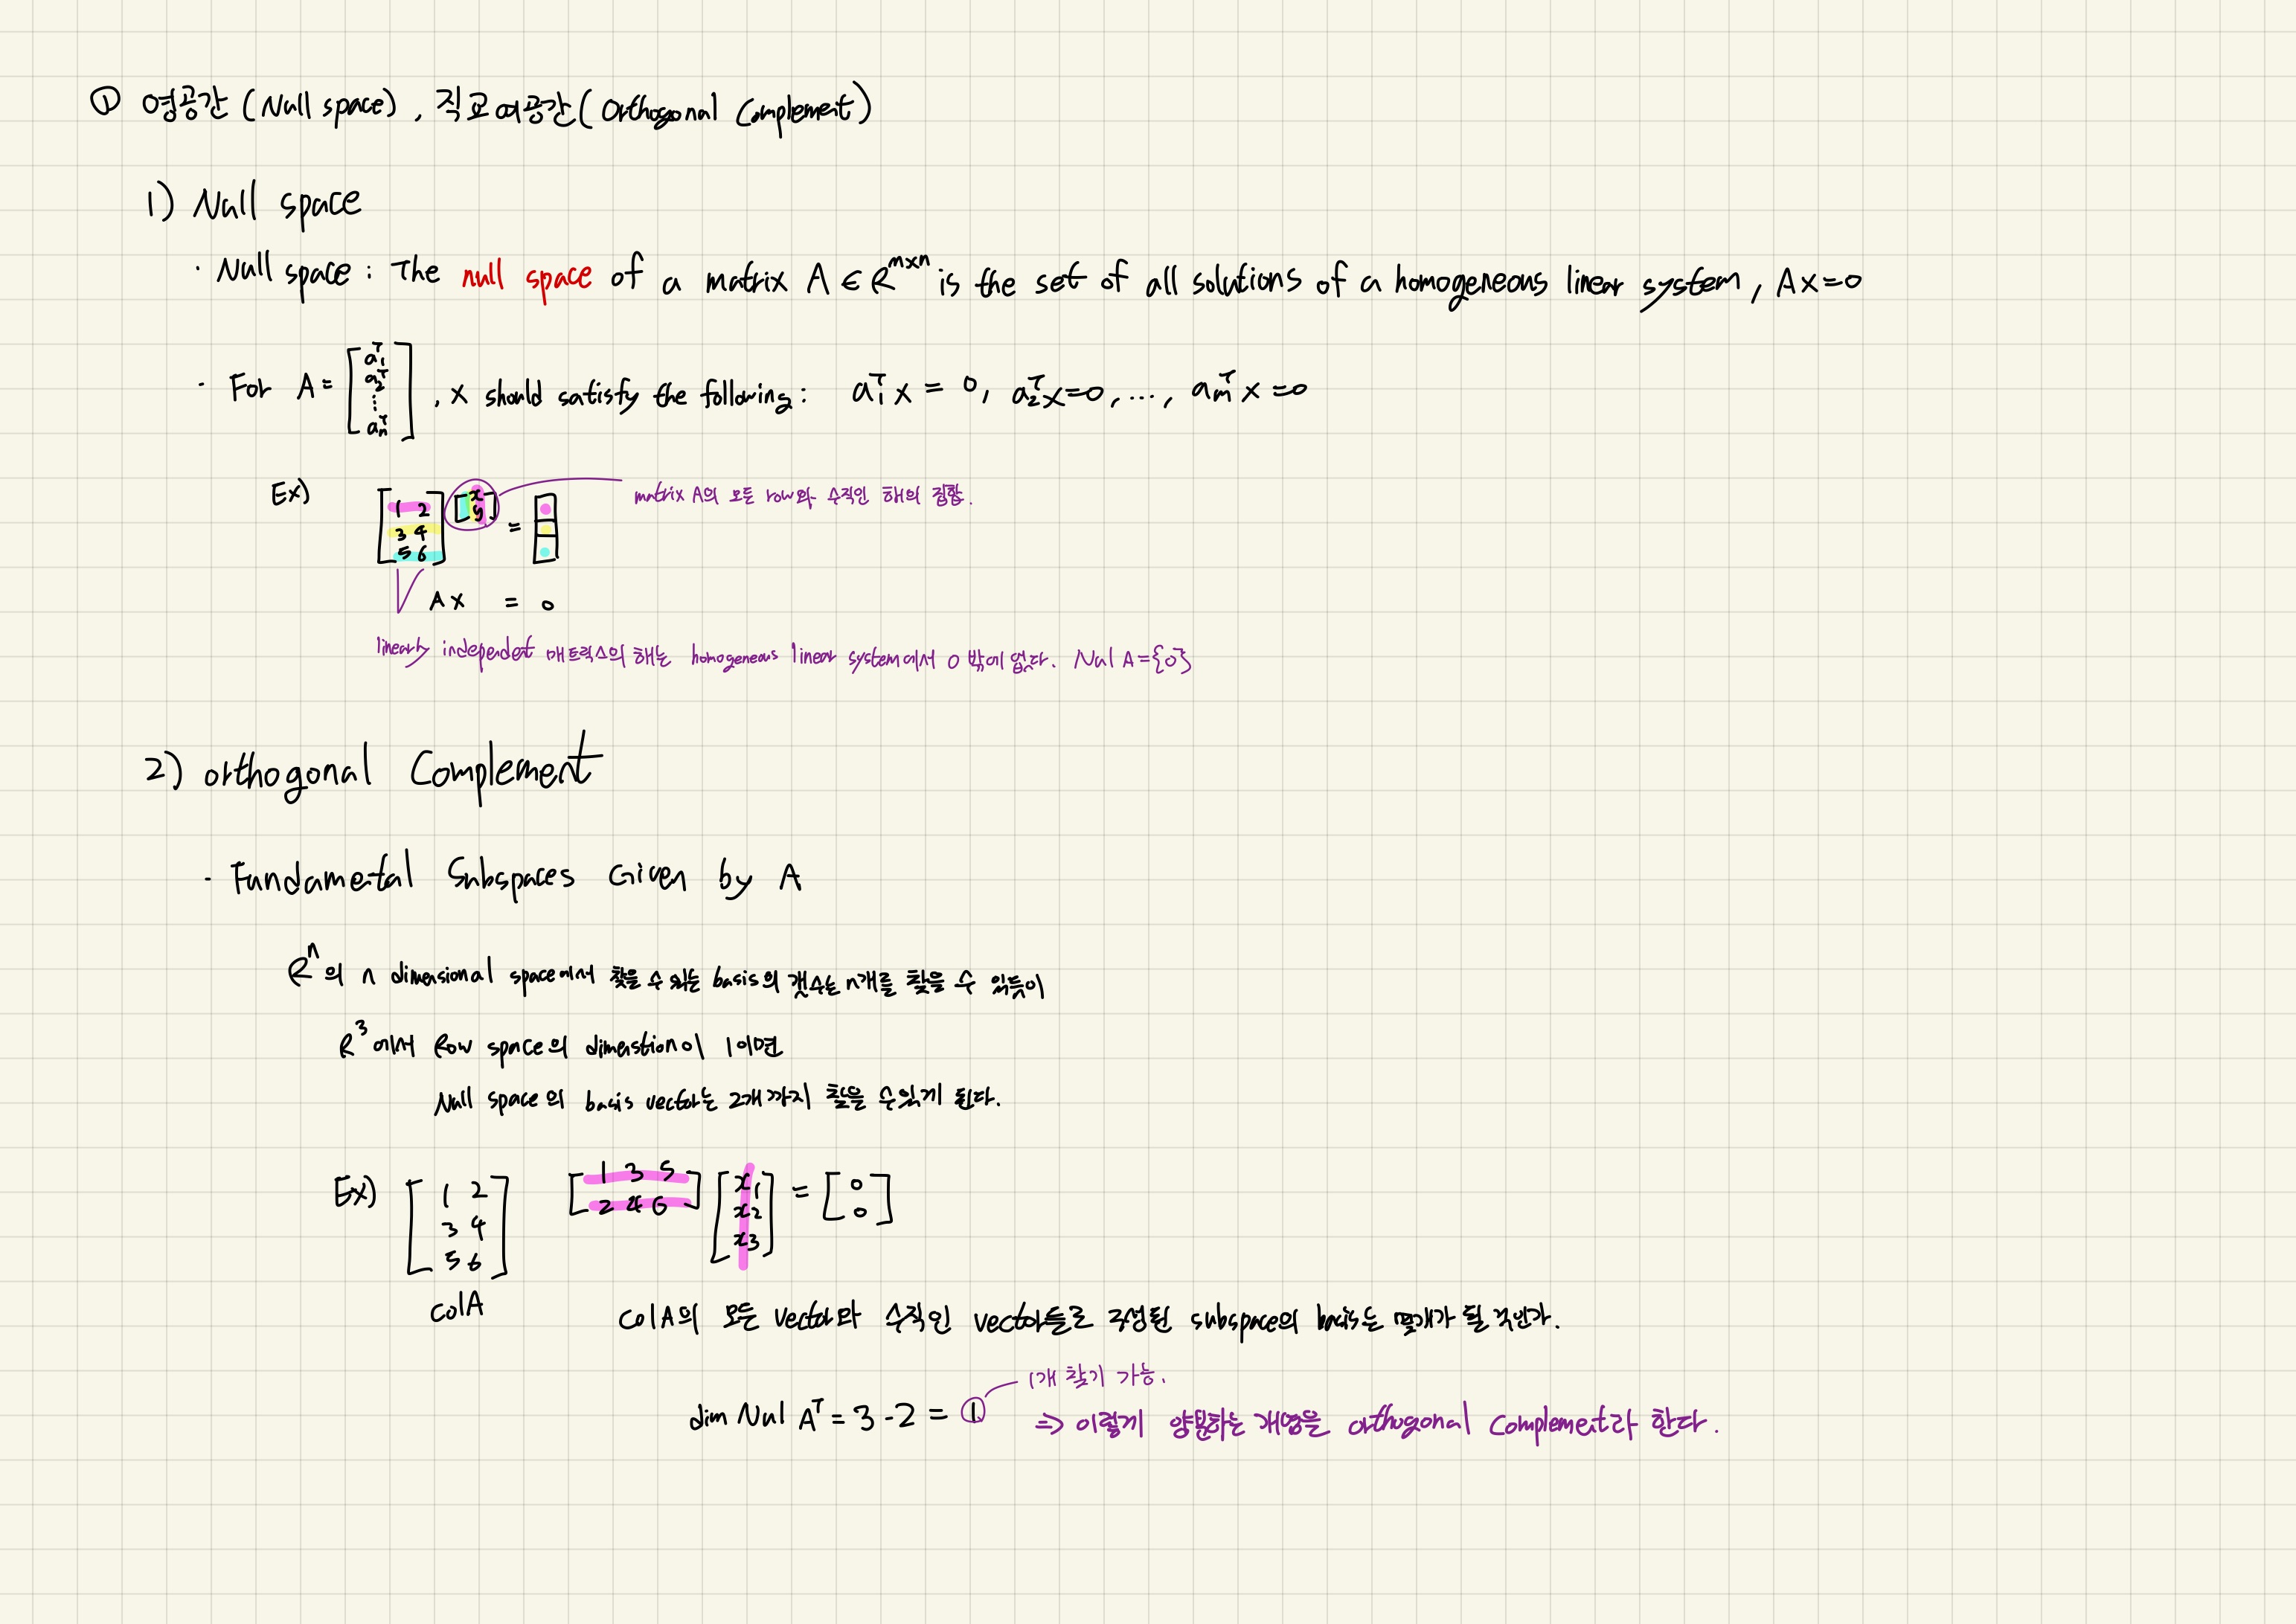 ① 영공간 (Null space), 직교여공간 (Orthogonal Complement)
1) Null space
· Null space : The null space of a matrix A ∈ R^{m×n} is the set of all solutions of a homogeneous linear system, Ax=0
· For A = [a₁ᵀ a₂ᵀ ⋮ aₘᵀ], x should satisfy the following : a₁ᵀx = 0, a₂ᵀx=0, ..., aₘᵀx=0
Ex) [1 2; 3 4; 5 6] [x; y] = [ ]
matrix A의 모든 row와 수직인 해의 집합.
Ax = 0
linearly independent 매트릭스의 해는 homogeneous linear system에서 0 밖에 없다. Nul A={0}
2) orthogonal Complement
· Fundamental Subspaces Given by A
Rⁿ의 n dimensional space에서 찾을 수 있는 basis의 갯수는 n개를 찾을 수 있듯이
R³에서 Row space의 dimenstion이 1이면
Null space의 basis vector는 2개까지 찾을 수 있게 된다.
Ex) [1 2; 3 4; 5 6] [1 3 5; 2 4 6] [x₁; x₂; x₃] = [0; 0]
ColA
ColA의 모든 vector와 수직인 vector들로 구성된 subspace의 basis는 몇개가 될 것인가.
1개 찾기 가능.
dim Nul Aᵀ = 3 - 2 = ①
⇒ 이렇게 양분하는 개념을 orthogonal Complement라 한다.